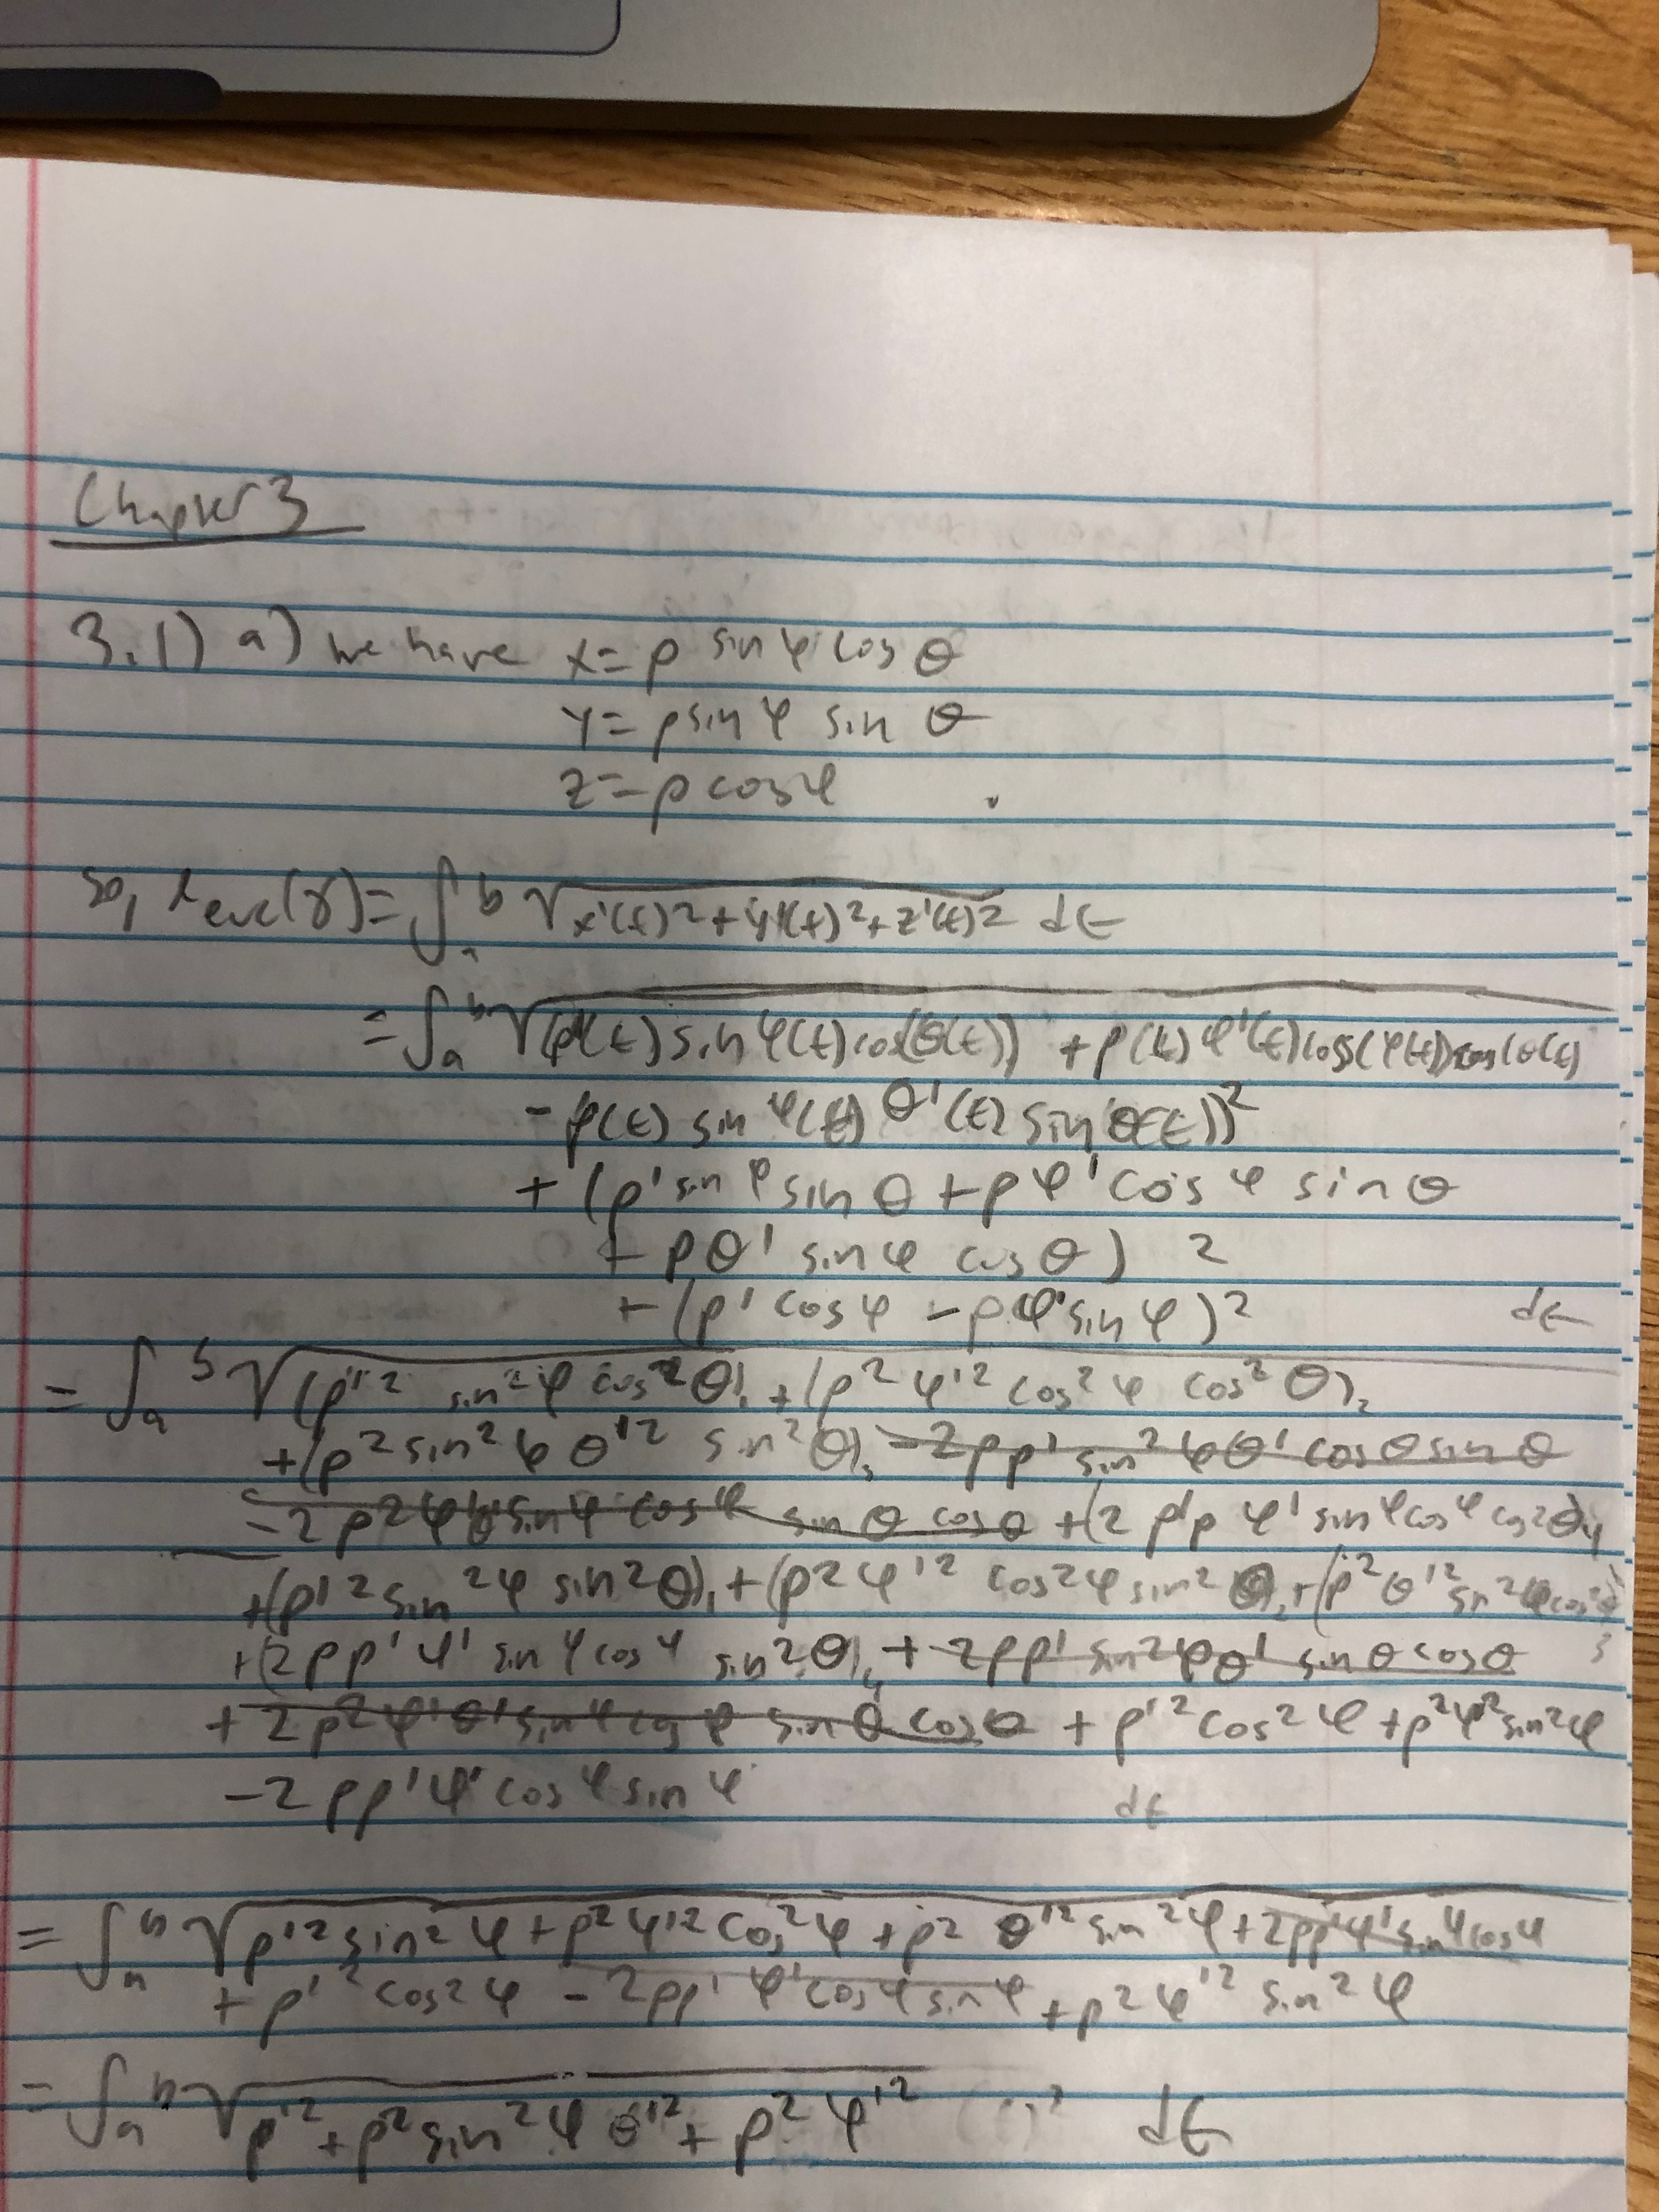 Chapter 3
3.1) a) we have x = ρ sin φ cos θ
y = ρ sin φ sin θ
z = ρ cos φ
So, ℓeuc(γ) = ∫ₐᵇ √(x'(t)² + y'(t)² + z'(t)²) dt
= ∫ₐᵇ √((ρ'(t) sin φ(t) cos(θ(t)) + ρ(t) φ'(t) cos(φ(t)) cos(θ(t))
- ρ(t) sin φ(t) θ'(t) sin(θ(t)))²
+ (ρ' sin φ sin θ + ρ φ' cos φ sin θ
+ ρ θ' sin φ cos θ)²
+ (ρ' cos φ - ρ φ' sin φ)² dt
= ∫ₐᵇ √(ρ'² sin² φ cos² θ)₁ + (ρ² φ'² cos² φ cos² θ)₂
+ (ρ² sin² φ θ'² sin² θ)₃ - 2ρρ' sin² φ θ' cos θ sin θ
- 2ρ² φ' θ' sin φ cos φ sin θ cos θ + (2ρ'ρ φ' sin φ cos φ cos² θ)₄
+ (ρ'² sin² φ sin² θ)₁ + (ρ² φ'² cos² φ sin² θ)₂ + (ρ² θ'² sin² φ cos² θ)₃
+ (2ρρ' φ' sin φ cos φ sin² θ)₄ + 2ρρ' sin² φ θ' sin θ cos θ
+ 2ρ² φ' θ' sin φ cos φ sin θ cos θ + ρ'² cos² φ + ρ² φ'² sin² φ
- 2ρρ' φ' cos φ sin φ dt
= ∫ₐᵇ √ρ'² sin² φ + ρ² φ'² cos² φ + ρ² θ'² sin² φ + 2ρρ' φ' sin φ cos φ
+ ρ'² cos² φ - 2ρρ' φ' cos φ sin φ + ρ² φ'² sin² φ
= ∫ₐᵇ √ρ'² + ρ² sin² φ θ'² + ρ² φ'² dt